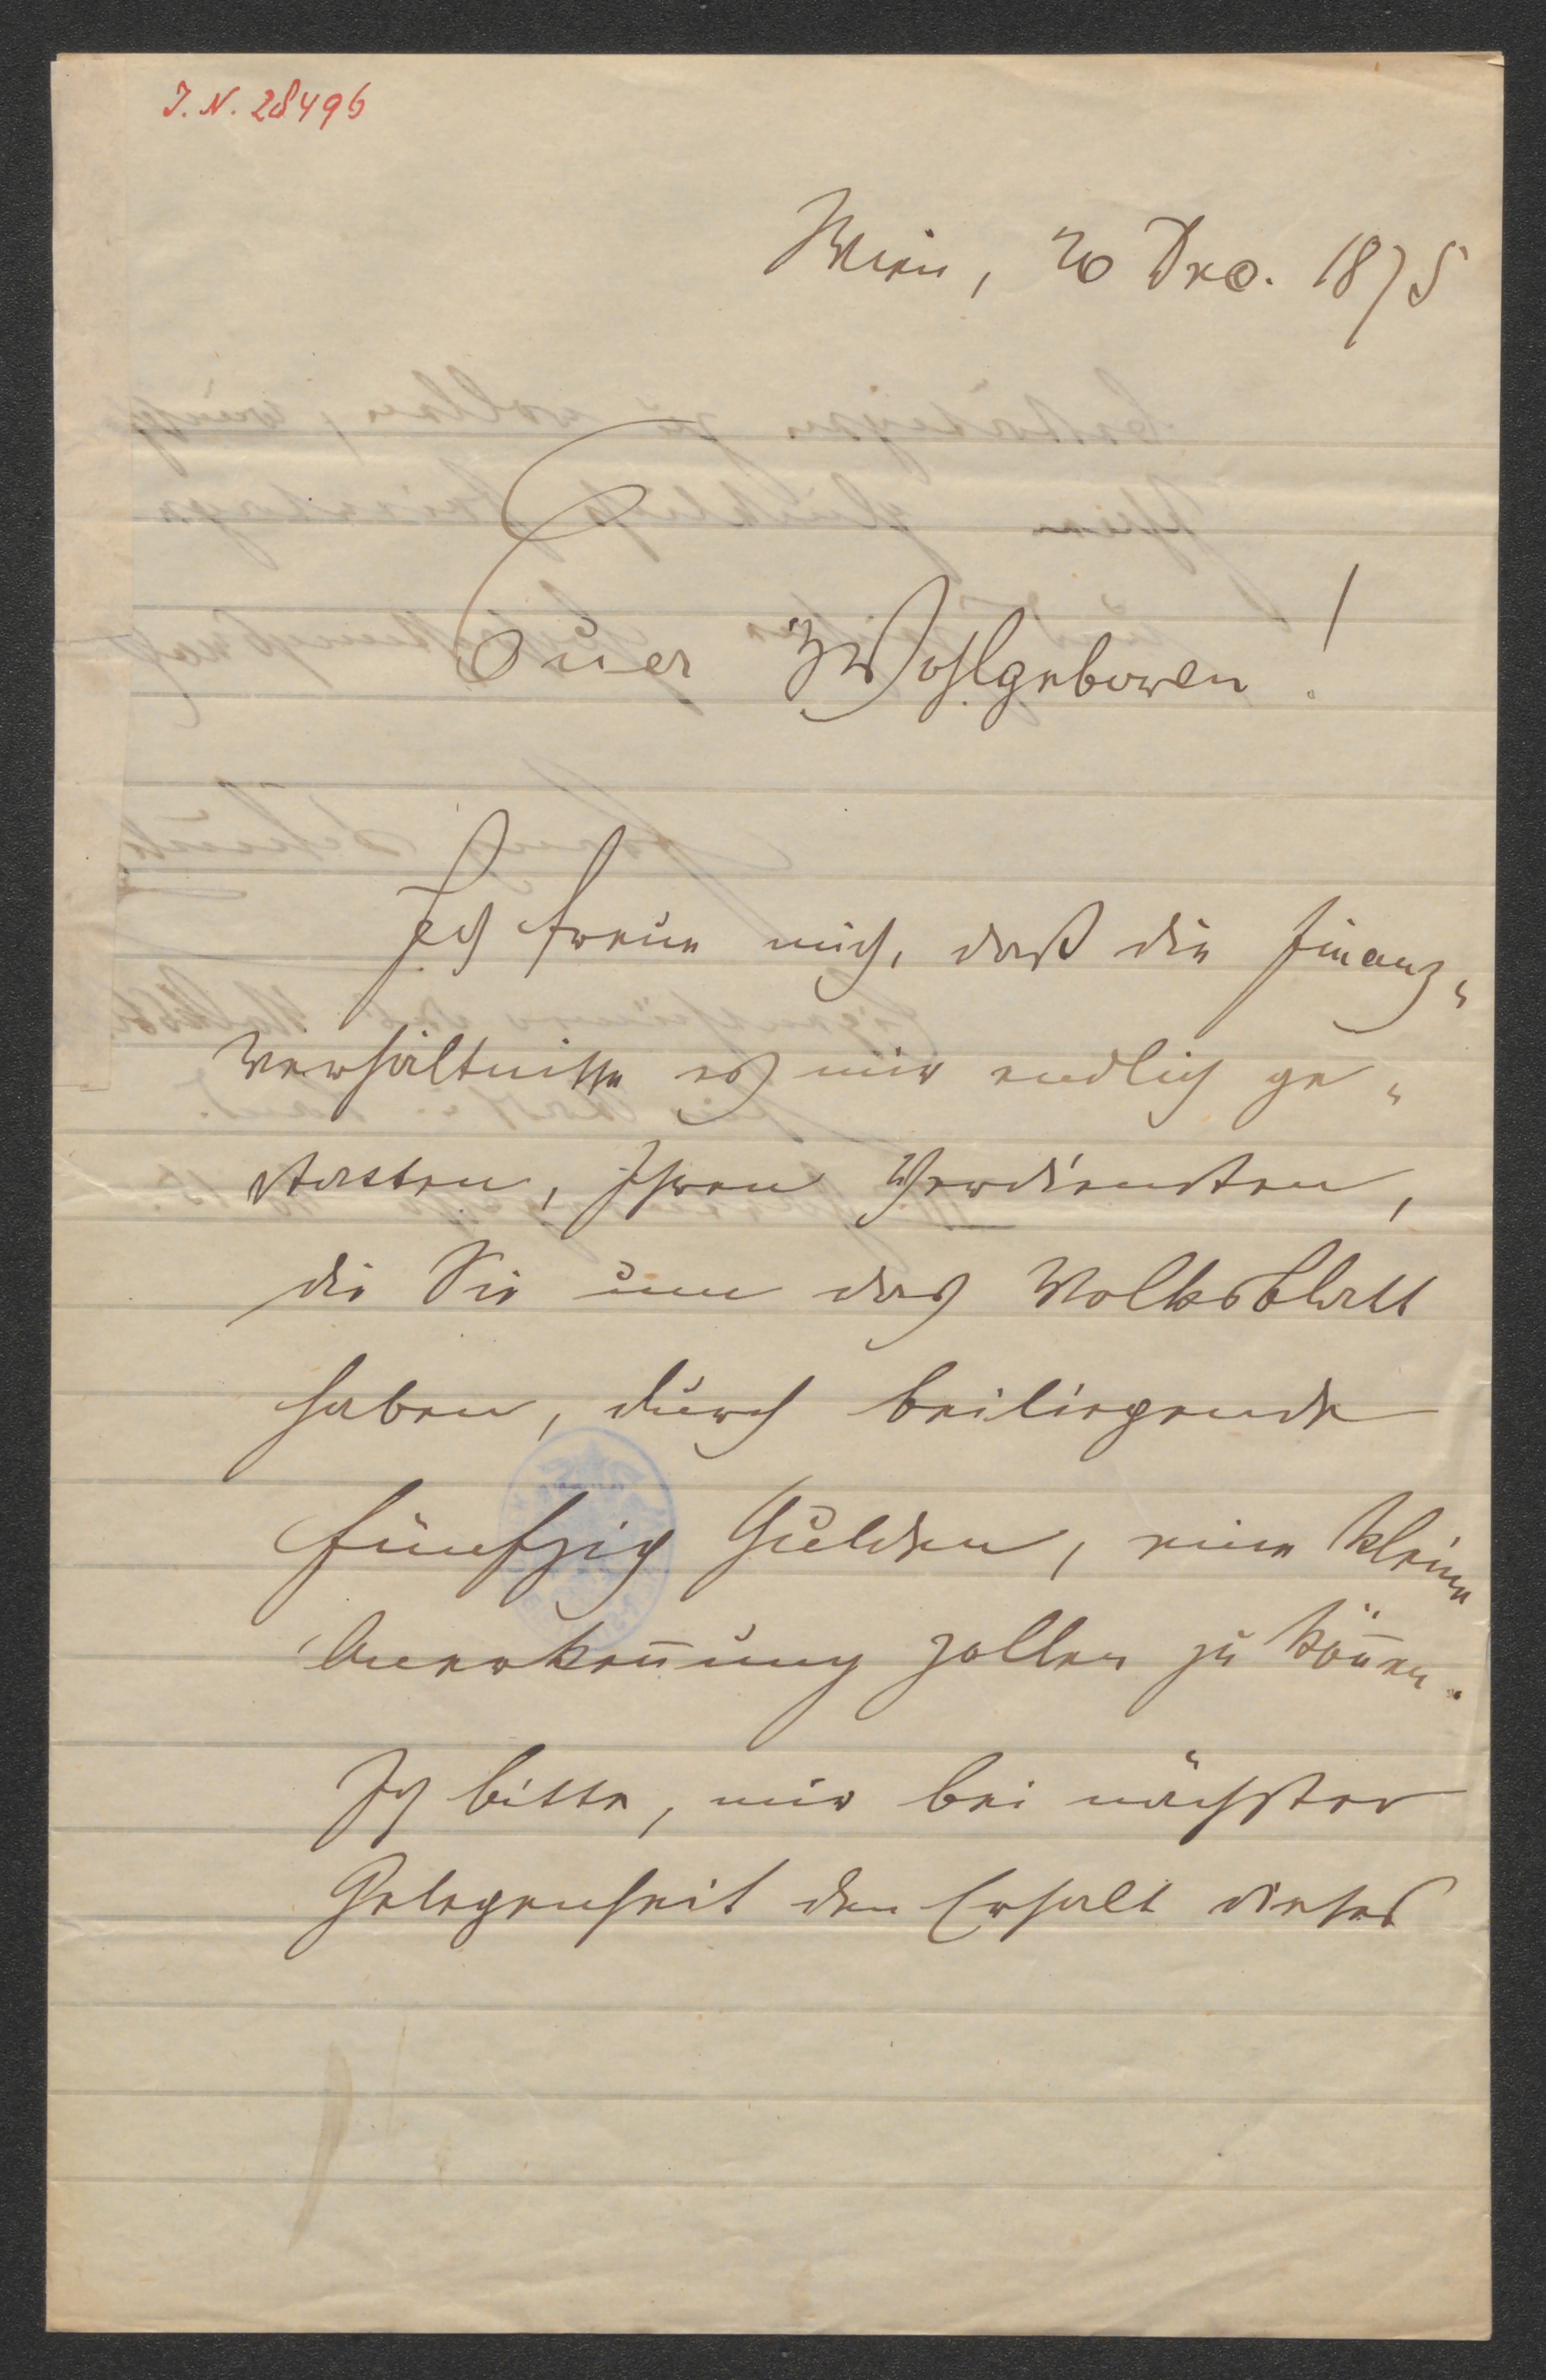 J. N. 28496
Wien, 20 Dec. 1875
Euer Wohlgeboren!
Ich freue mich, daß die Finanz„
verhältnisse es mir endlich ge„
statten, Ihren Verdiensten,
die Sie um das Volksblatt
haben, durch beiliegende
fünfzig Gulden, eine kleine
Anerkennung zollen zu können.
Ich bitte, mir bei nächster
Gelegenheit den Erhalt dieses